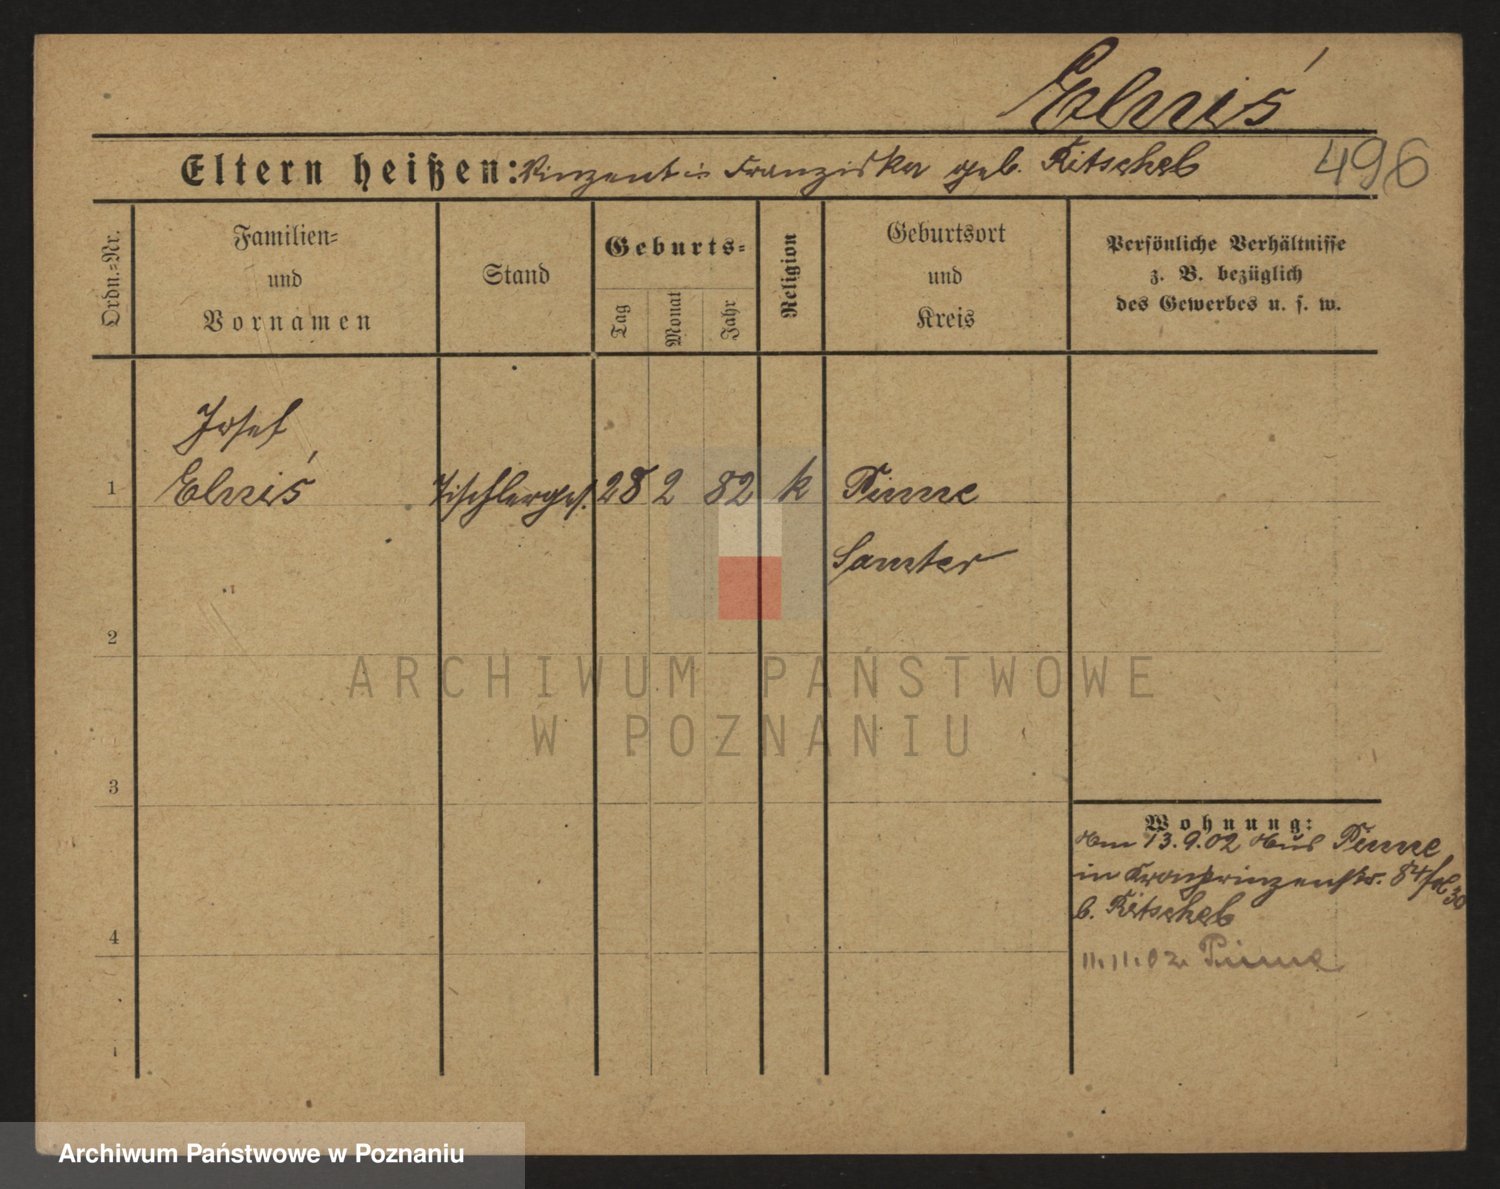 Elniś
Eltern heißen: Vinzent u Franziska geb. Kitscheb
496
Ordn.=Nr.
Familien=
und
Vornamen
Stand
Geburts=
Tag
Monat
Jahr
Religion
Geburtsort
und
Kreis
Persönliche Verhältnisse
z. B. bezüglich
des Gewerbes u. s. w.
Josef
1 Elniś Tischlerges. 28 2 82 k Pinne
Samter
2
3
4
Wohnung:
Am 13.9.02 Aus Pinne
in Kronprinzenstr. 84/
b. Kitscheb
11.11.02. Pinne
ARCHIWUM PAŃSTWOWE
W POZNANIU
Archiwum Państwowe w Poznaniu